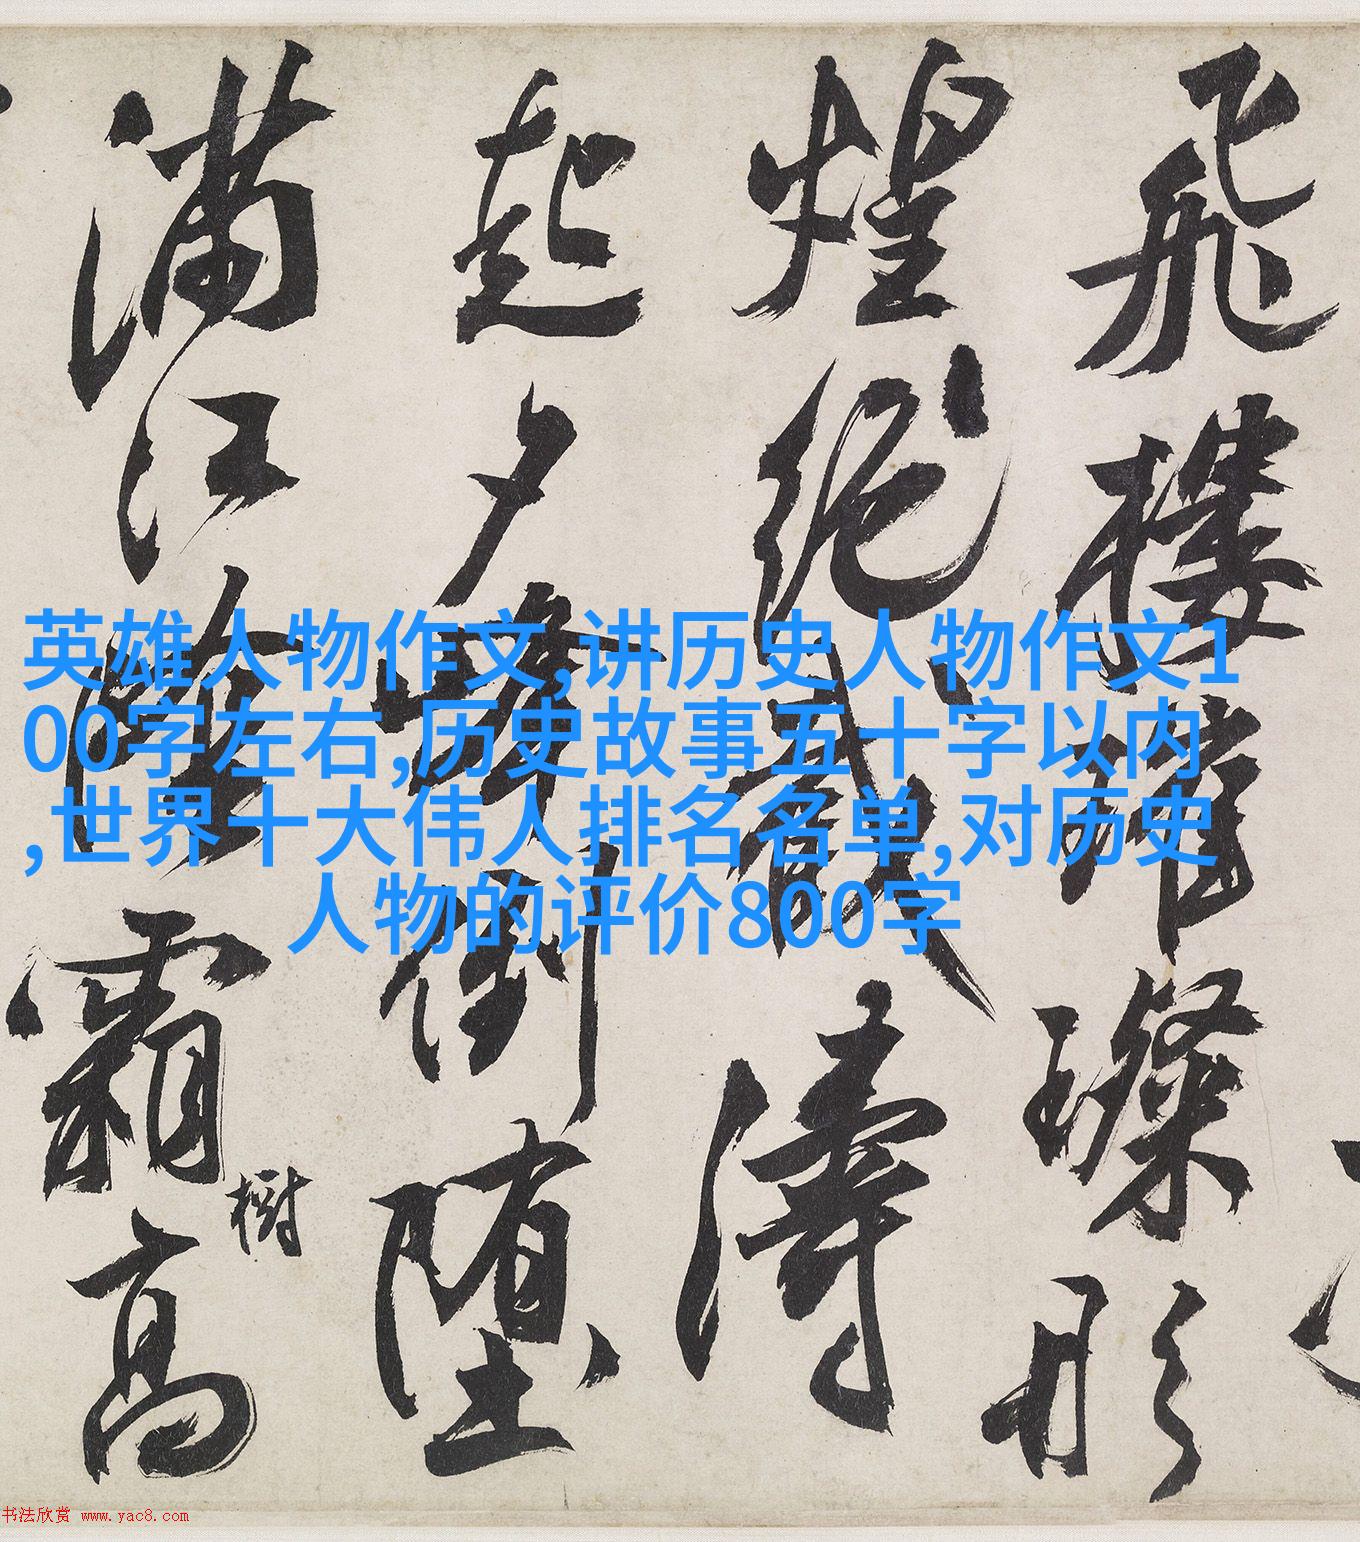 飛樓璀璨形
煌絕濤
起夕峰倒墮
滿江陰霜高
樹
英雄人物作文,讲历史人物作文1
00字左右,历史故事五十字以内
,世界十大伟人排名名单,对历史
人物的评价800字
书法欣赏 www.yac8.com